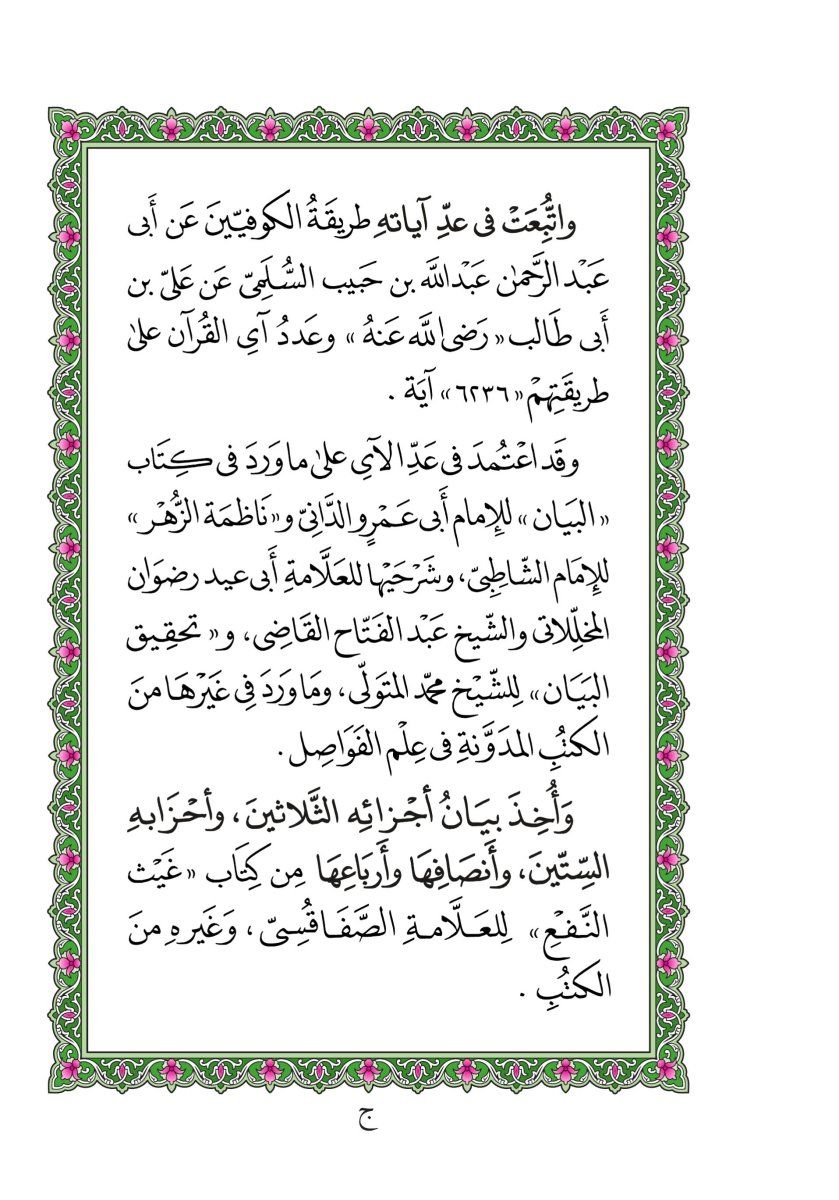 واتُّبِعَتْ فى عدِّ آياتهِ طريقَةُ الكوفيّينَ عَن أَبى
عَبْد الرَّحمٰن عَبْدالله بن حَبيب السُّلَمِىّ عَن عَلىّ بن
أَبى طَالب « رَضى الله عَنهُ » وعَددُ آىِ القُرآن علىٰ
طريقَتِهمْ « ٦٢٣٦ » آيَة .
وقَد اعْتُمدَ فى عَدِّ الآىِ علىٰ ما وَردَ فى كِتَاب
« البَيَان » للإمام أَبى عَمْرٍو الدَّانِىّ و « نَاظمَة الزُّهْر »
للإمَام الشّاطِبىّ ، وشَرْحَيْها للعَلَّامةِ أَبى عيد رضوَان
المخلِّلاتى والشّيخ عَبْد الفَتّاح القَاضِى ، و « تحقِيق
البَيَان » لِلشَّيْخ محمَّد المتَولّى ، ومَا وَردَ فِى غَيْرْهَا منَ
الكتُبِ المدَوَّنةِ فى عِلْم الفَوَاصِل .
وَأُخِذَ بيَانُ أجْزائِه الثَّلاثينَ ، وأحْزَابهِ
السِّتّينَ ، وأَنصَافِهَا وأَربَاعِهَا مِن كِتَاب « غَيْث
النَّفعِ » لِلعَلَّامةِ الصَّفَاقُسِىّ ، وَغَيرهِ منَ
الكتُبِ .
ج